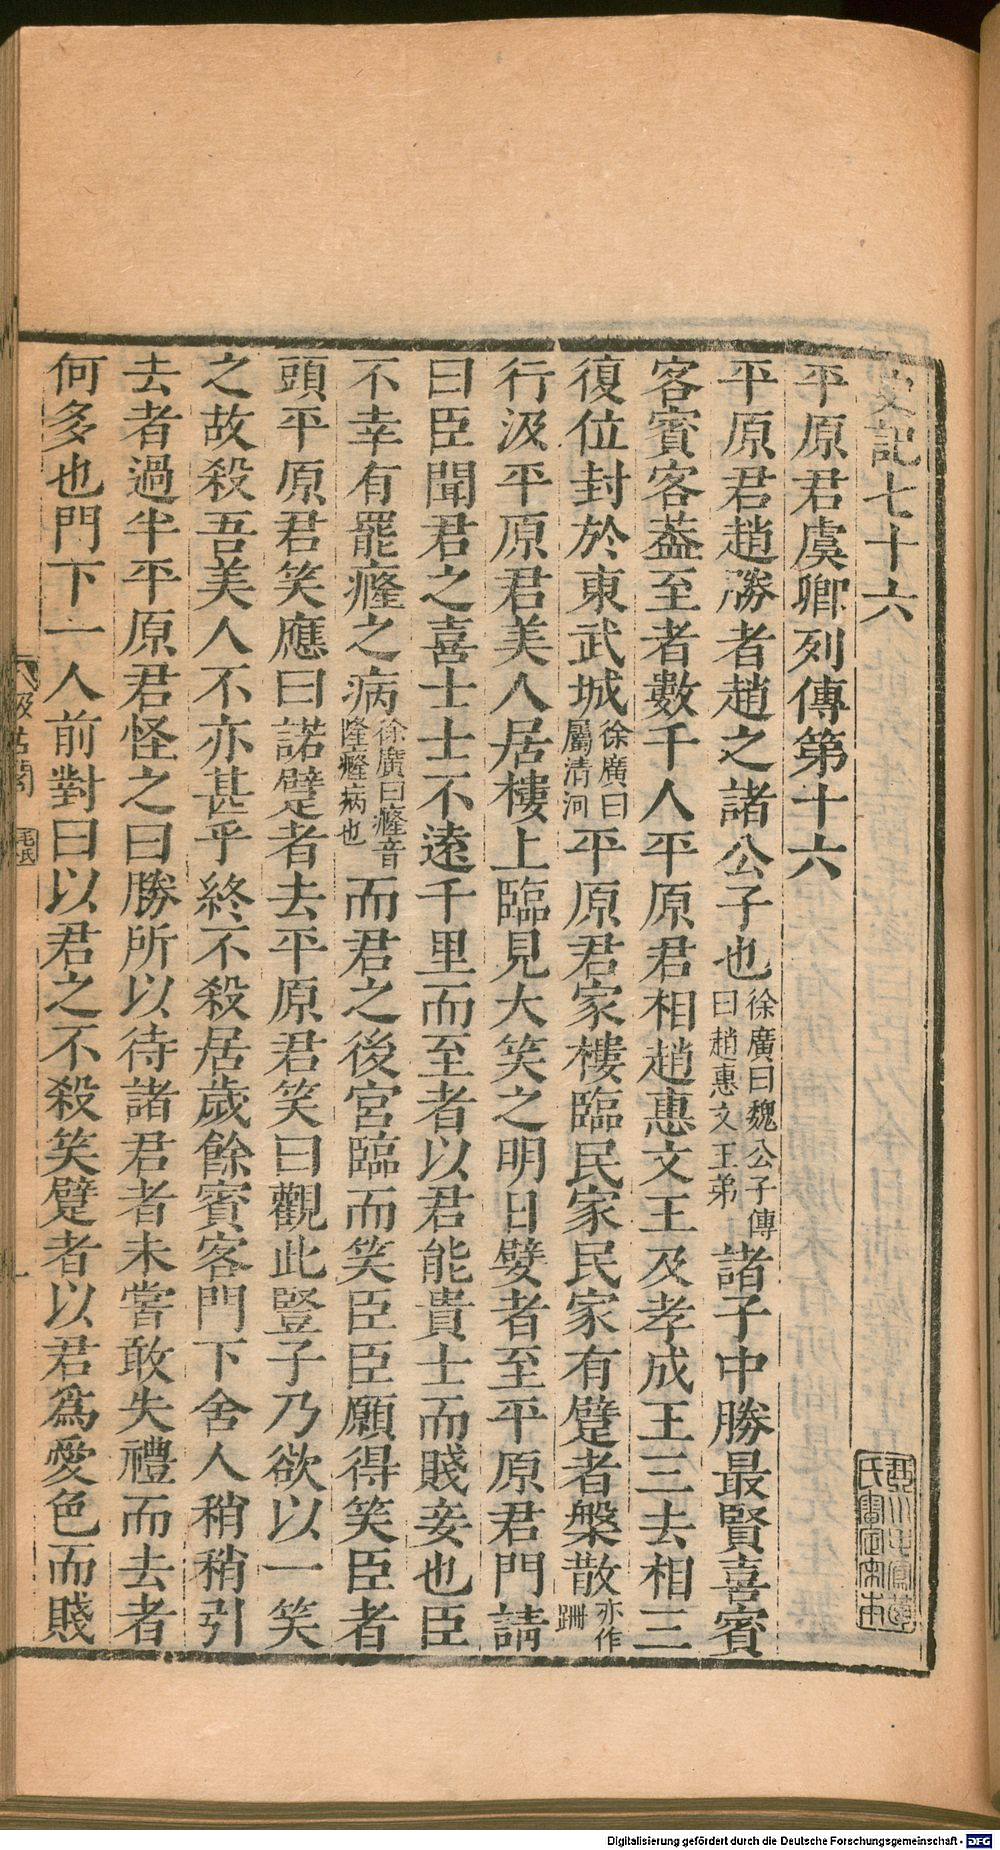 史記七十六
平原君虞卿列傳第十六
平原君趙勝者趙之諸公子也徐廣曰魏公子傳曰趙惠文王弟諸子中勝最賢喜賓
客賓客葢至者數千人平原君相趙惠文王及孝成王三去相三
復位封於東武城徐廣曰屬清河平原君家樓臨民家民家有躄者槃散亦作跚
行汲平原君美人居樓上臨見大笑之明日躄者至平原君門請
曰臣聞君之喜士士不遠千里而至者以君能貴士而賤妾也臣
不幸有罷癃之病徐廣曰癃音隆癃病也而君之後宮臨而笑臣臣願得笑臣者
頭平原君笑應曰諾躄者去平原君笑曰觀此豎子乃欲以一笑
之故殺吾美人不亦甚乎終不殺居歲餘賓客門下舍人稍稍引
去者過半平原君怪之曰勝所以待諸君者未嘗敢失禮而去者
何多也門下一人前對曰以君之不殺笑躄者以君爲愛色而賤
汲古閣
毛氏
一
Digitalisierung gefördert durch die Deutsche Forschungsgemeinschaft - DFG